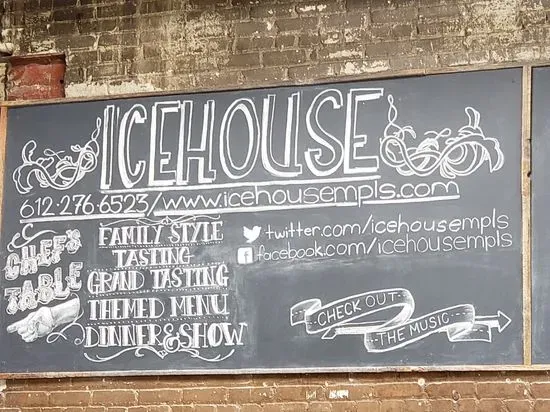 ICEHOUSE
612-276-6523/www.icehousempls.com
CHEF'S
TABLE
FAMILY STYLE
TASTING
GRAND TASTING
THEMED MENU
DINNER&SHOW
twitter.com/icehousempls
facebook.com/icehousempls
CHECK OUT
THE MUSIC